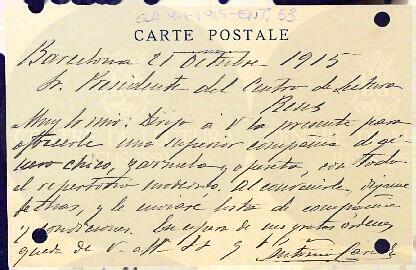 CARTE POSTALE
Barcelona 21 Octubre 1915
Sr. Presidente del Centro de Lectura
Reus
Muy Sr mio: Dirijo á V la presente para
ofrecerle una superior compañia de gé-
nero chico, zarzuela y opereta, con todo
el repertorio moderno. Al convenirle, digame
fechas, y le enviare lista de compañia
y condiciones. En espera de sus gratas órdenes
queda de V. affº SS
Antonio